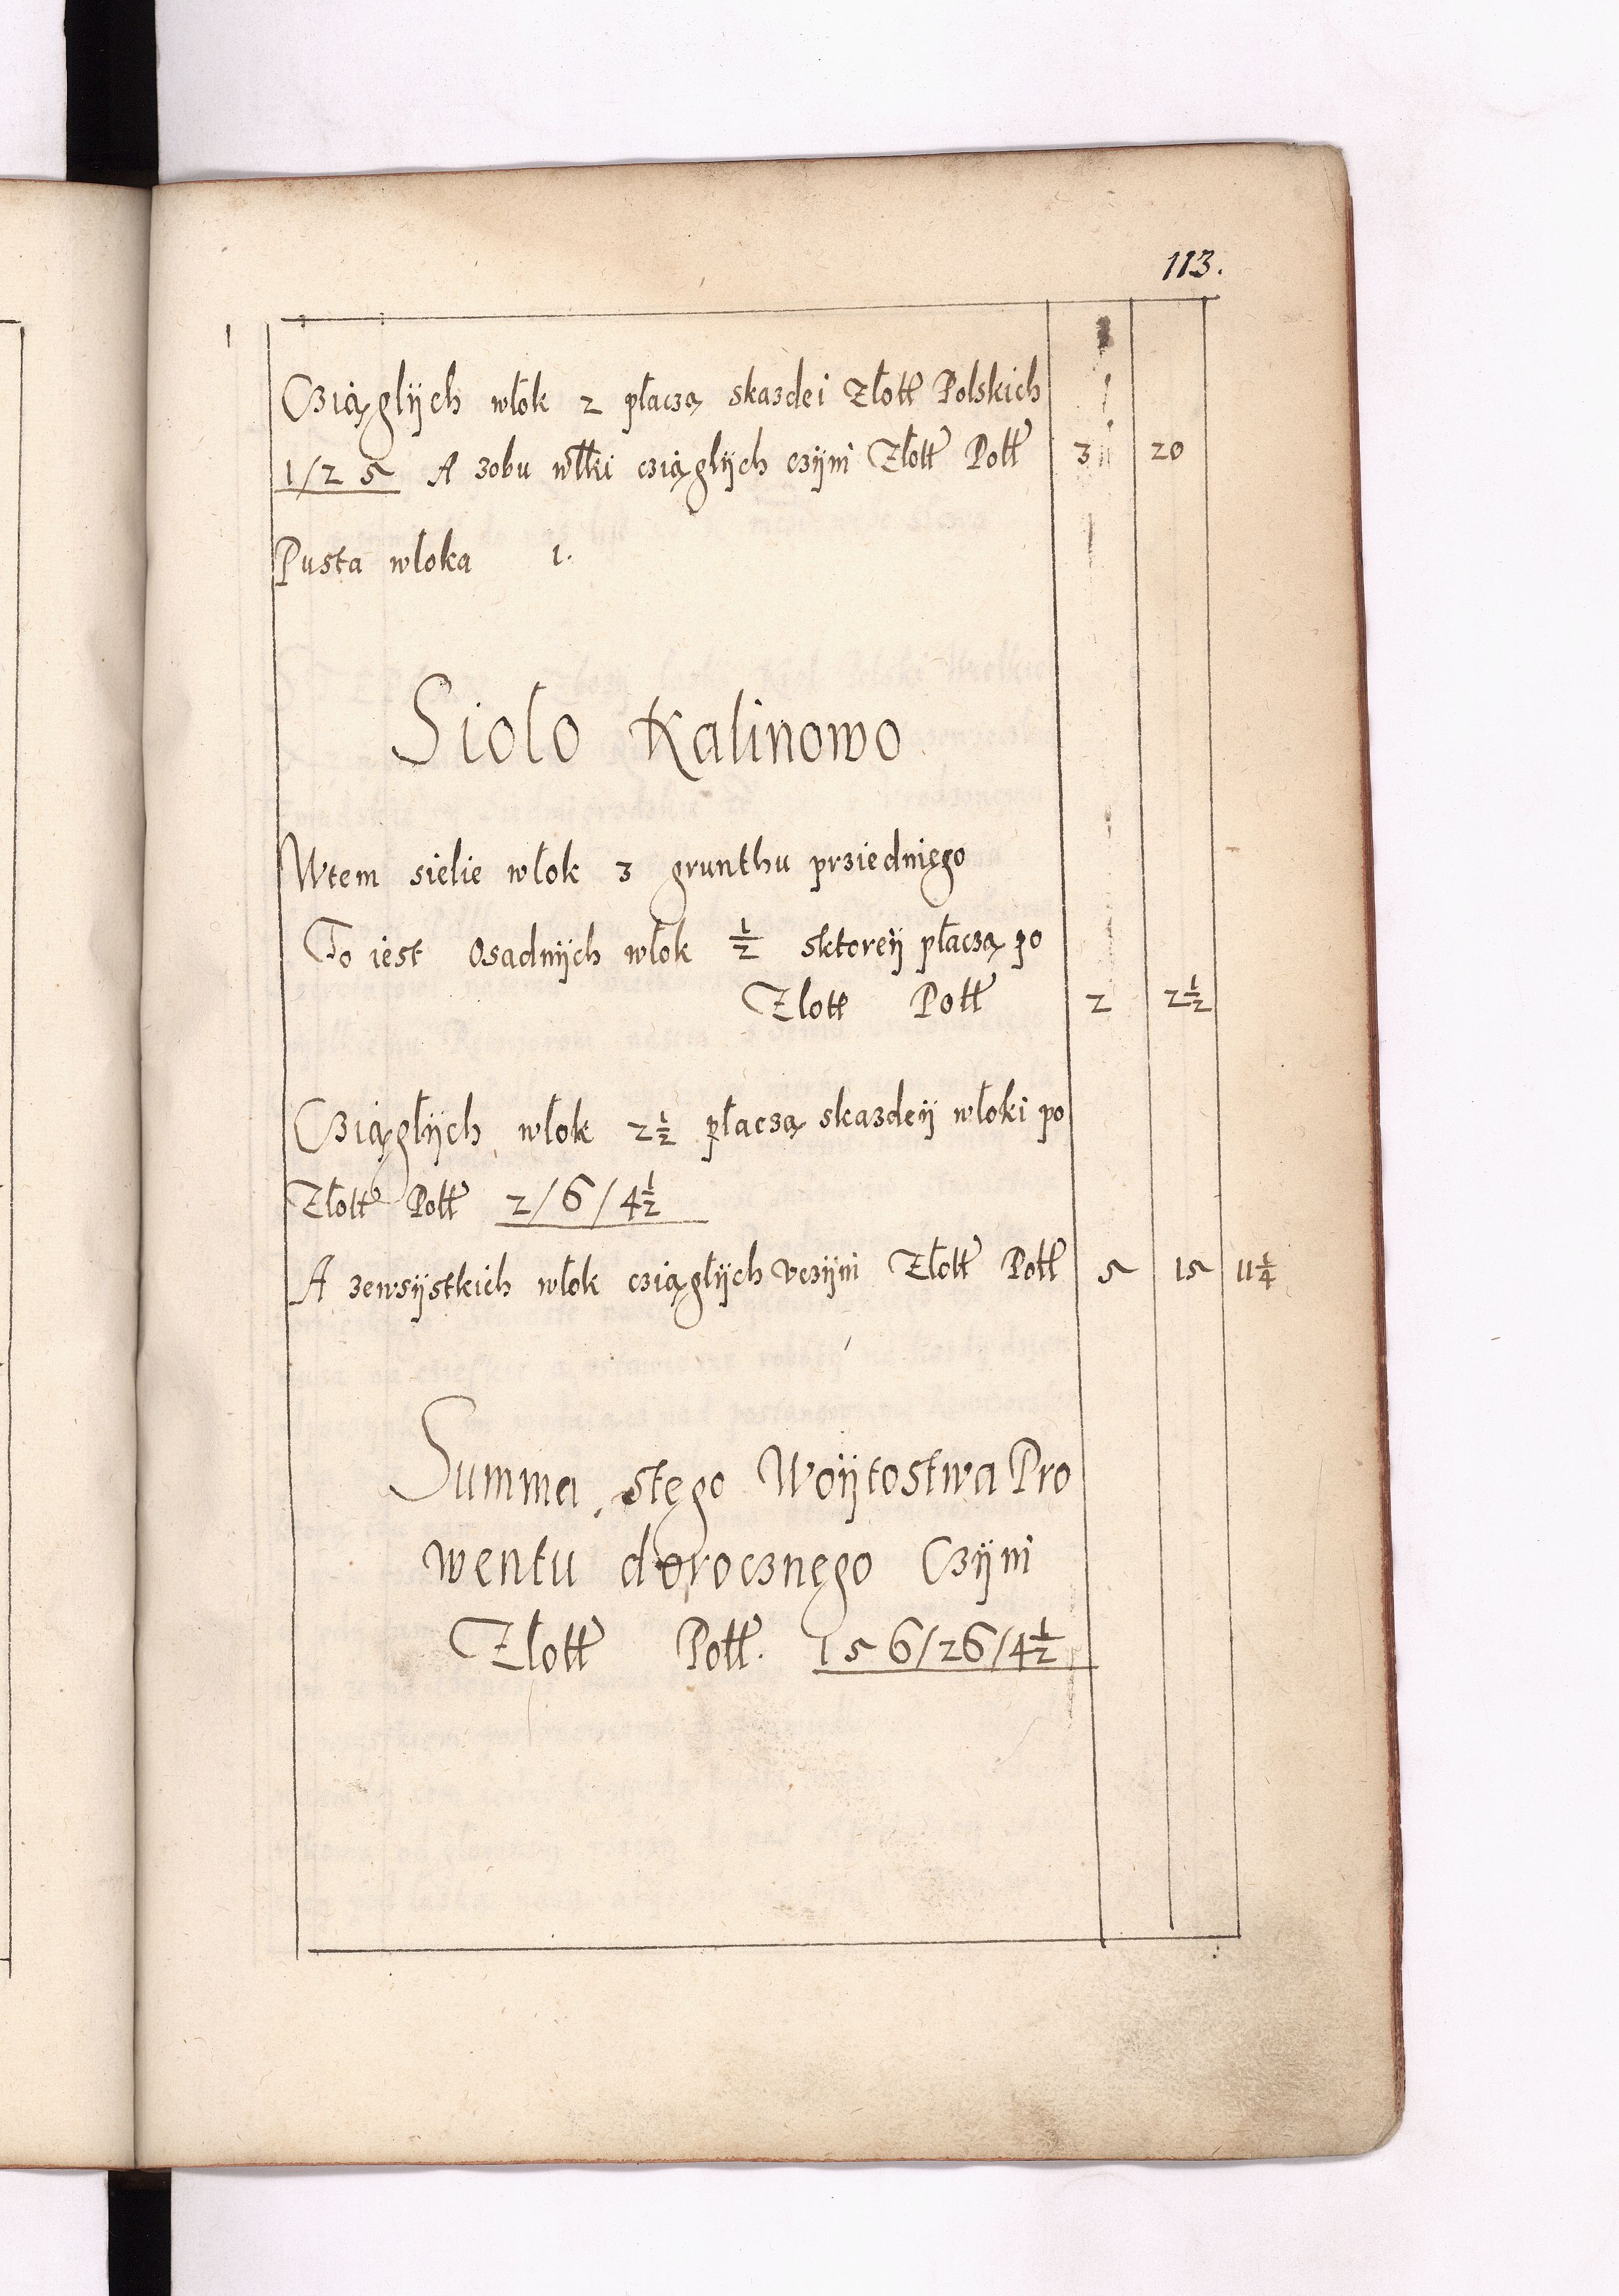 113.
Cziągłÿch włok 2 płaczą skazdei Złott Polskich
1/25 A zobu włłki cziągłÿch czÿni Złott Poll 3 20
Pusta włoka 1.
Siolo Kalinowo
Wtem sielie włok 3 grunthu przięniego
To iest Osadnÿch włok ½ sktoreÿ płaczą po
Złott Poll 2 2½
Cziągłÿch włok 2½ płaczą skazdeÿ włoki po
Złott Poll 2/6/4½
A zewsÿstkich włok cziągłÿch vczÿni Złott Poll 5 15 11¼
Summa stęgo Woÿtostwa Pro
wentu dorocznęgo Czÿni
Złott Poll. 156/26/4½